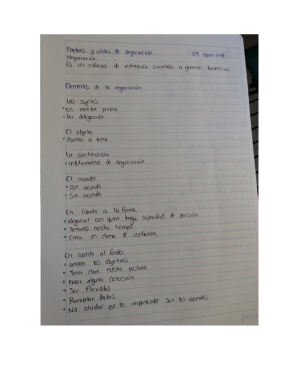 Factores y estilos de negociación
Negociación.
Es un esfuerzo de interacción orientado a generar beneficios
Elementos de la negociación
Los sujetos
• En nombre propio
• Por delegación
El objeto
• Asunto a tratar
La controversia
• Planteamiento de negociación
El acuerdo
• Con acuerdo
• Sin acuerdo
En cuanto a la forma.
• Negociar con quien tenga capacidad de decisión
• Tomarnos nuestro tiempo
• Crear un clima de confianza.
En cuanto al fondo
• conocer los objetivos
• Tener clara nuestra postura
• Hacer alguna concesión
• Ser flexibles
• Recopilar datos
• No olvidar que lo importante son los acuerdos